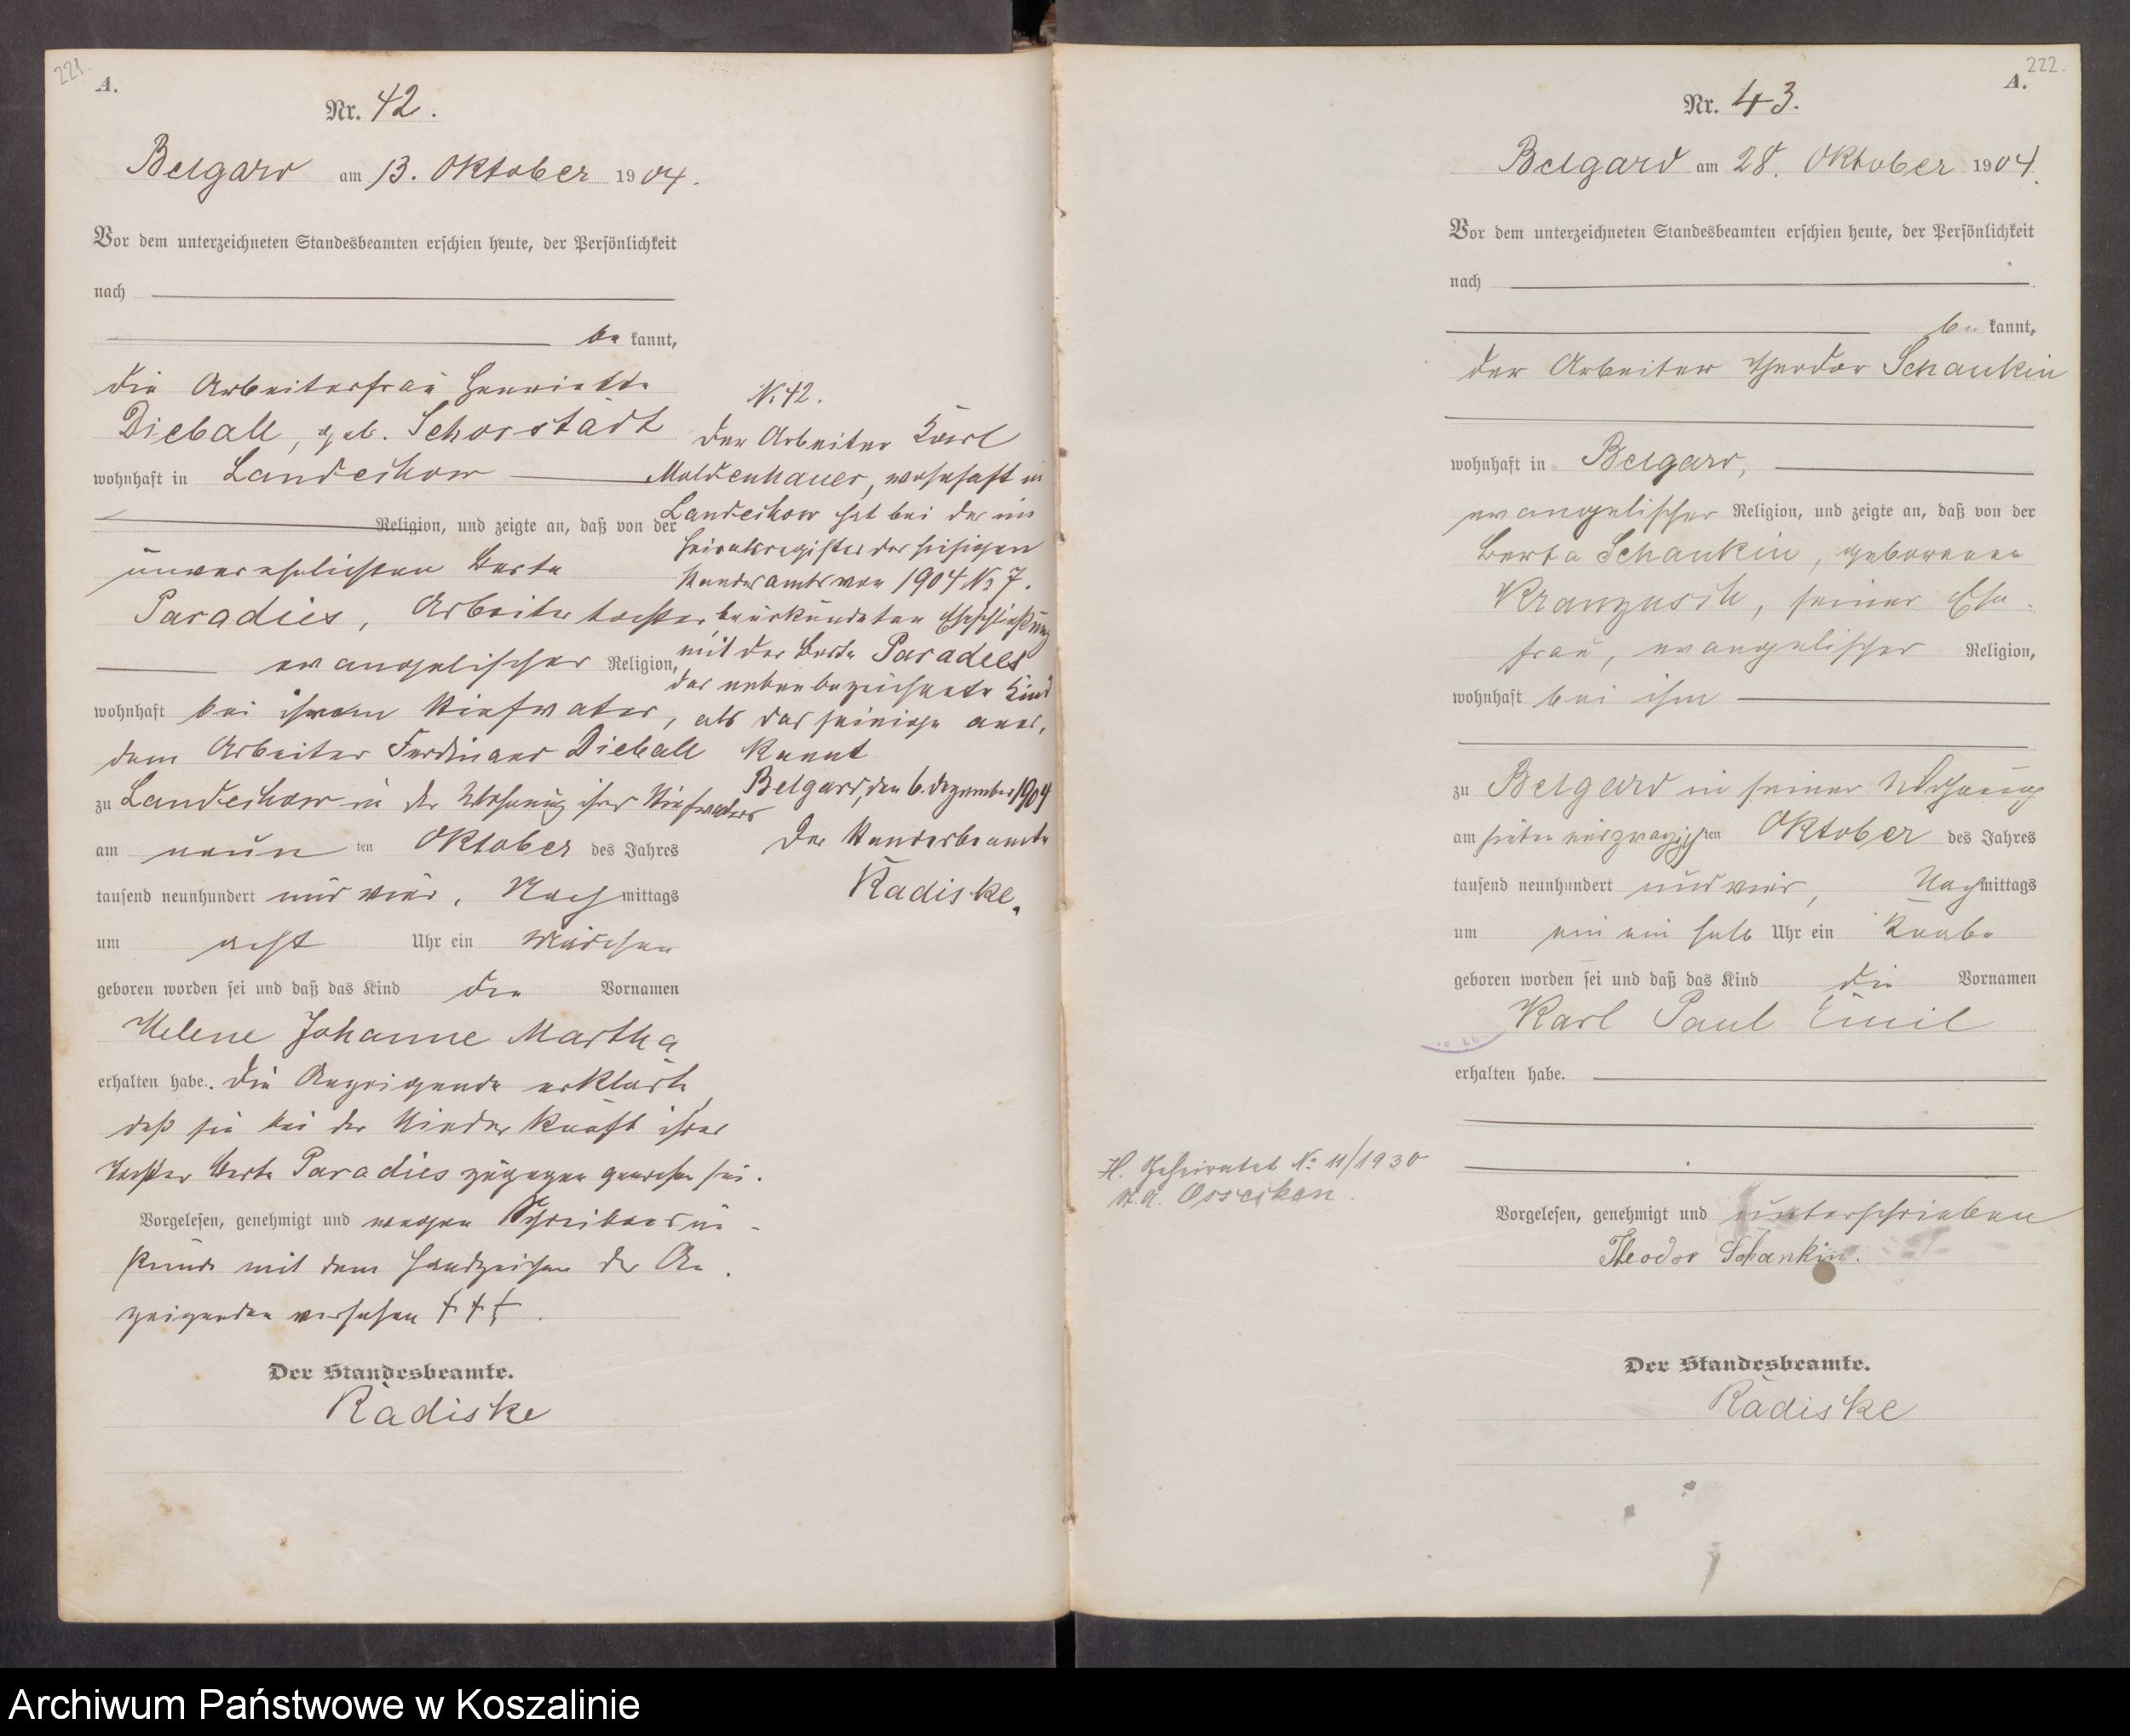 221.
A.
Nr. 42.
Belgard am 13. Oktober 1904.
Vor dem unterzeichneten Standesbeamten erschien heute, der Persönlichkeit
nach
be kannt,
die Arbeiterfrau Henriette
Dieball, geb. Schorstädt
wohnhaft in Landechow
Religion, und zeigte an, daß von der
unverehelichten Berta
Paradies, Arbeitertochter,
evangelischer Religion,
wohnhaft bei ihrem Stiefvater,
dem Arbeiter Ferdinand Dieball
zu Landechow in der Wohnung ihres Stiefvaters
am neun ten Oktober des Jahres
tausend neunhundert und vier, Nach mittags
um acht Uhr ein Mädchen
geboren worden sei und daß das Kind die Vornamen
Helene Johanne Martha
erhalten habe. Die Anzeigende erklärte,
daß sie bei der Niederkunft ihrer
Tochter Berta Paradies zugegen gewesen sei.
Vorgelesen, genehmigt und wegen Schreibensun-
kunde mit dem Handzeichen der An-
zeigenden versehen +++.
Der Standesbeamte.
Radiske
No 42.
Der Arbeiter Karl
Moldenhauer, wohnhaft in
Landechow hat bei der im
Heiratsregister des hiesigen
Standesamts von 1904 No 7.
beurkundeten Eheschließung
mit der Berta Paradies
das nebenbezeichnete Kind
als das seinige aner-
kannt
Belgard, den 6. Dezember 1904
Der Standesbeamte
Radiske.
222.
A.
Nr. 43.
Belgard am 28. Oktober 1904.
Vor dem unterzeichneten Standesbeamten erschien heute, der Persönlichkeit
nach
be kannt,
der Arbeiter Theodor Schankin
wohnhaft in Belgard,
evangelischer Religion, und zeigte an, daß von der
Berta Schankin, geborenen
Kranzusch, seiner Ehe-
frau, evangelischer Religion,
wohnhaft bei ihm
zu Belgard in seiner Wohnung
am siebenundzwanzigsten Oktober des Jahres
tausend neunhundert und vier, Nachmittags
um ein ein halb Uhr ein Knabe
geboren worden sei und daß das Kind die Vornamen
Karl Paul Emil
erhalten habe.
H. Geheiratet No 11/1930
St.A. Ossecken.
Vorgelesen, genehmigt und unterschrieben
Theodor Schankin.
Der Standesbeamte.
Radiske
Archiwum Państwowe w Koszalinie